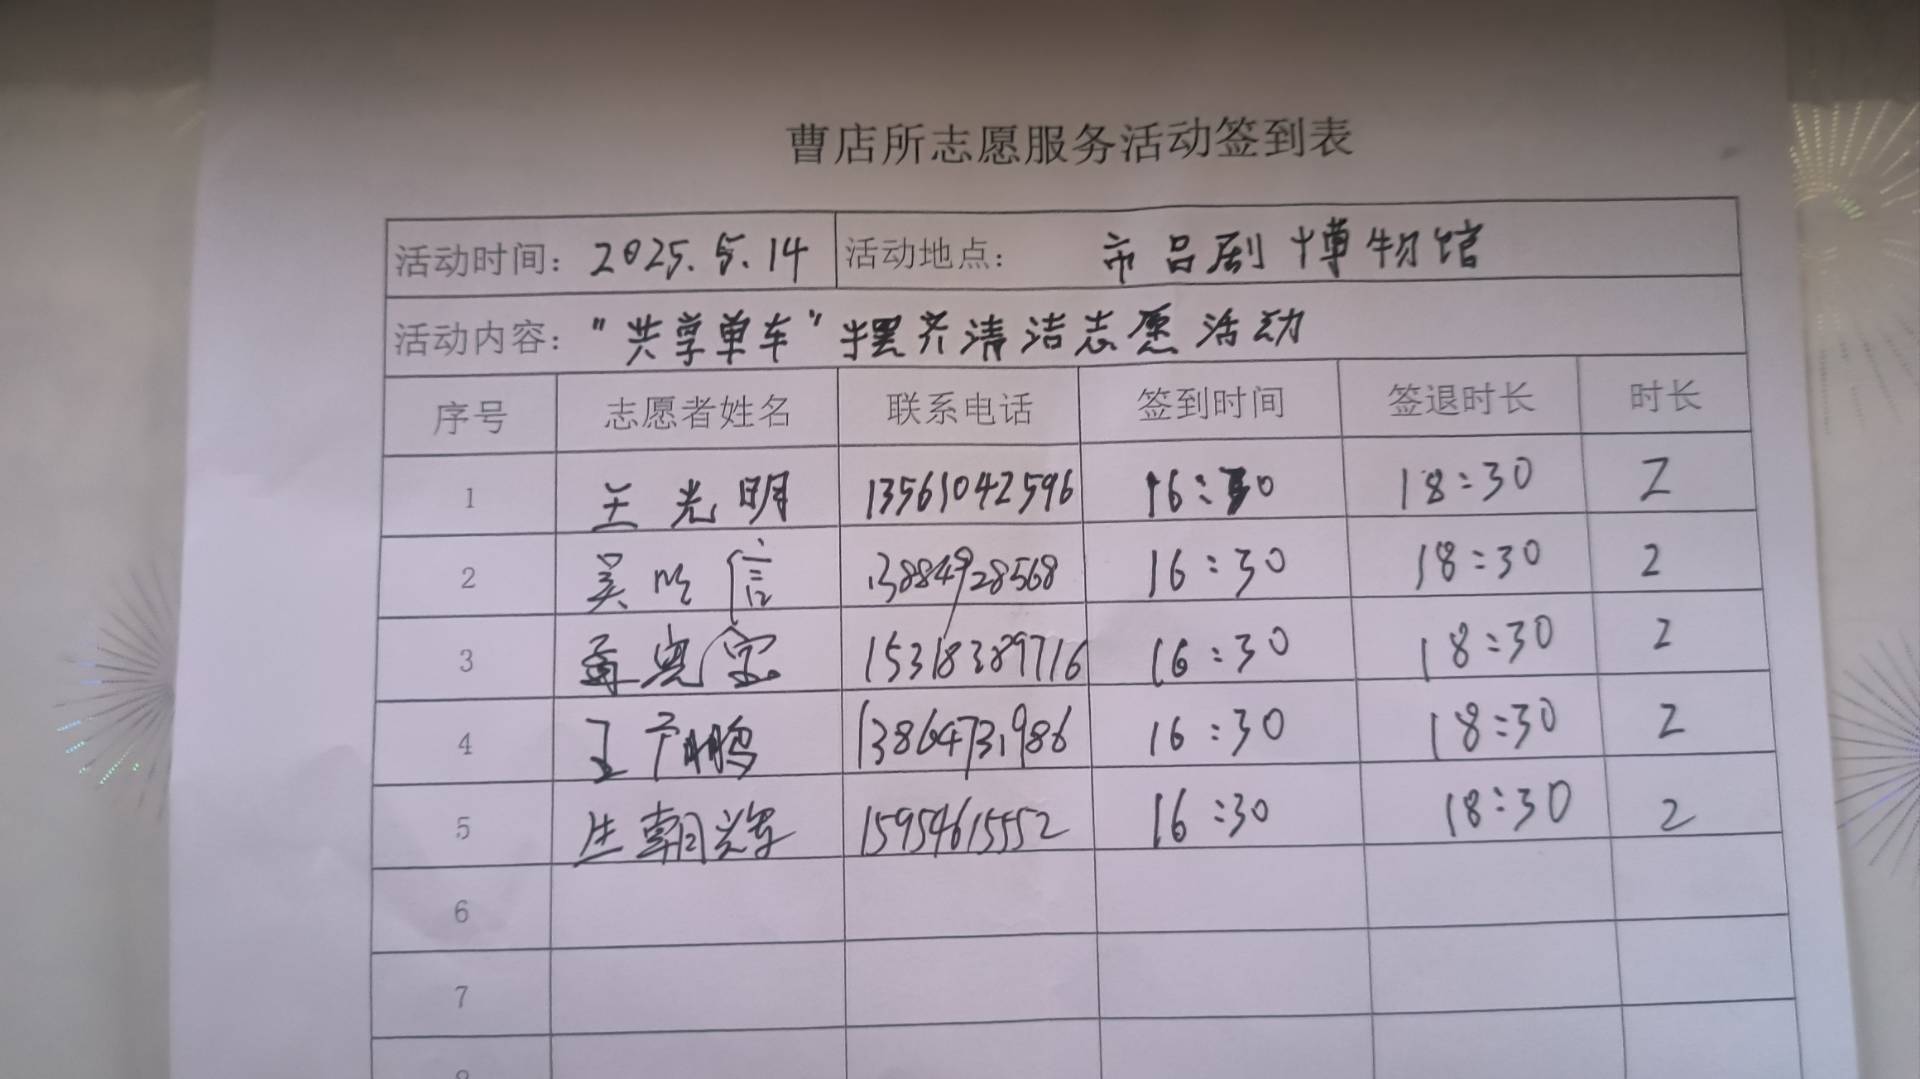 曹店所志愿服务活动签到表
活动时间： 2025.5.14 活动地点： 市吕剧博物馆
活动内容： "共享单车"摆齐清洁志愿活动
序号 志愿者姓名 联系电话 签到时间 签退时长 时长
1 王光明 13561042596 16:30 18:30 2
2 吴 信 13884928568 16:30 18:30 2
3 15318389716 16:30 18:30 2
4 王 鹏 13864731986 16:30 18:30 2
5 生朝辉 15954615552 16:30 18:30 2
6
7